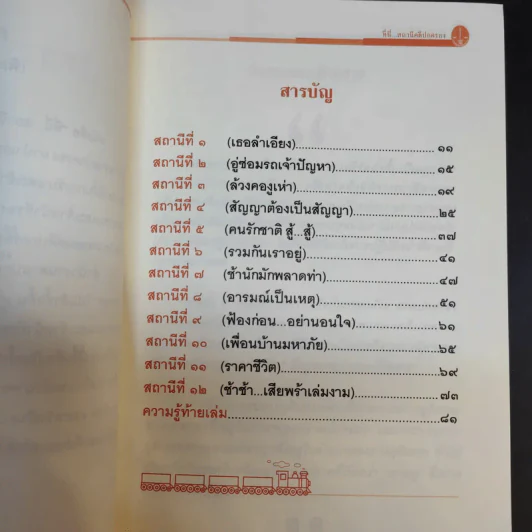 ที่นี่...สถานีคดีปกครอง
สารบัญ
สถานีที่ ๑ (เธอลำเอียง)........................................ ๑๑
สถานีที่ ๒ (อู่ซ่อมรถเจ้าปัญหา)............................ ๑๕
สถานีที่ ๓ (ล้วงคองูเห่า)........................................ ๑๙
สถานีที่ ๔ (สัญญาต้องเป็นสัญญา)........................๒๕
สถานีที่ ๕ (คนรักชาติ สู้...สู้)...................................๓๗
สถานีที่ ๖ (รวมกันเราอยู่)......................................๔๑
สถานีที่ ๗ (ช้านักมักพลาดท่า)...............................๔๗
สถานีที่ ๘ (อารมณ์เป็นเหตุ)..................................๕๑
สถานีที่ ๙ (ฟ้องก่อน...อย่านอนใจ).........................๖๑
สถานีที่ ๑๐ (เพื่อนบ้านมหาภัย)...............................๖๕
สถานีที่ ๑๑ (ราคาชีวิต)..........................................๖๙
สถานีที่ ๑๒ (ช้าช้า...เสียพร้าเล่มงาม).......................๗๓
ความรู้ท้ายเล่ม....................................................๘๑